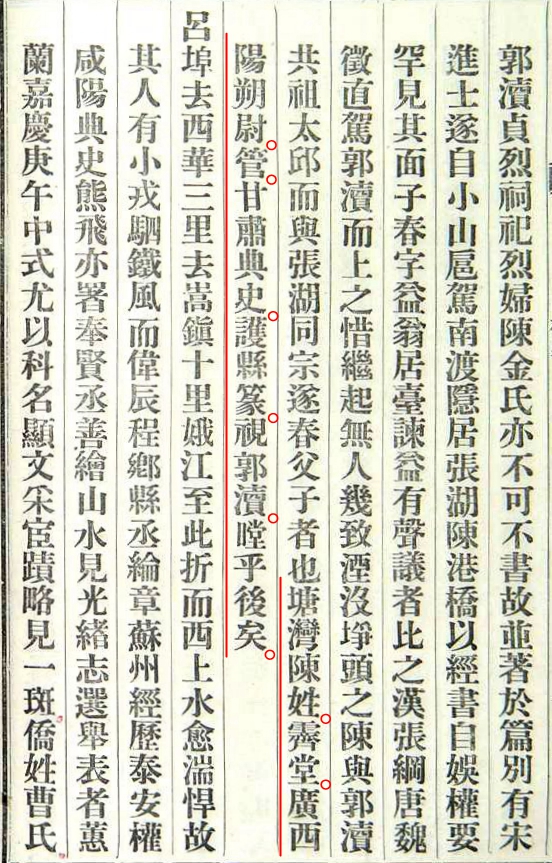 郭瀆貞烈祠祀烈婦陳金氏亦不可不書故並著於篇別有宋
進士遂自小山扈駕南渡隱居張湖陳港橋以經書自娛權要
罕見其面子春字益翁居臺諫益有聲議者比之漢張綱唐魏
徵直駕郭瀆而上之惜繼起無人幾致湮沒埩頭之陳與郭瀆
共祖太邱而與張湖同宗遂春父子者也塘灣陳姓霽堂廣西
陽朔尉管甘肅典史護縣篆視郭瀆瞠乎後矣
呂埠去西華三里去嵩鎭十里娥江至此折而西上水愈湍悍故
其人有小戎駟鐵風而偉辰程鄉縣丞綸章蘇州經歷泰安權
咸陽典史熊飛亦署奉賢丞善繪山水見光緒志選舉表者蕙
蘭嘉慶庚午中式尤以科名顯文采宦蹟略見一斑僑姓曹氏